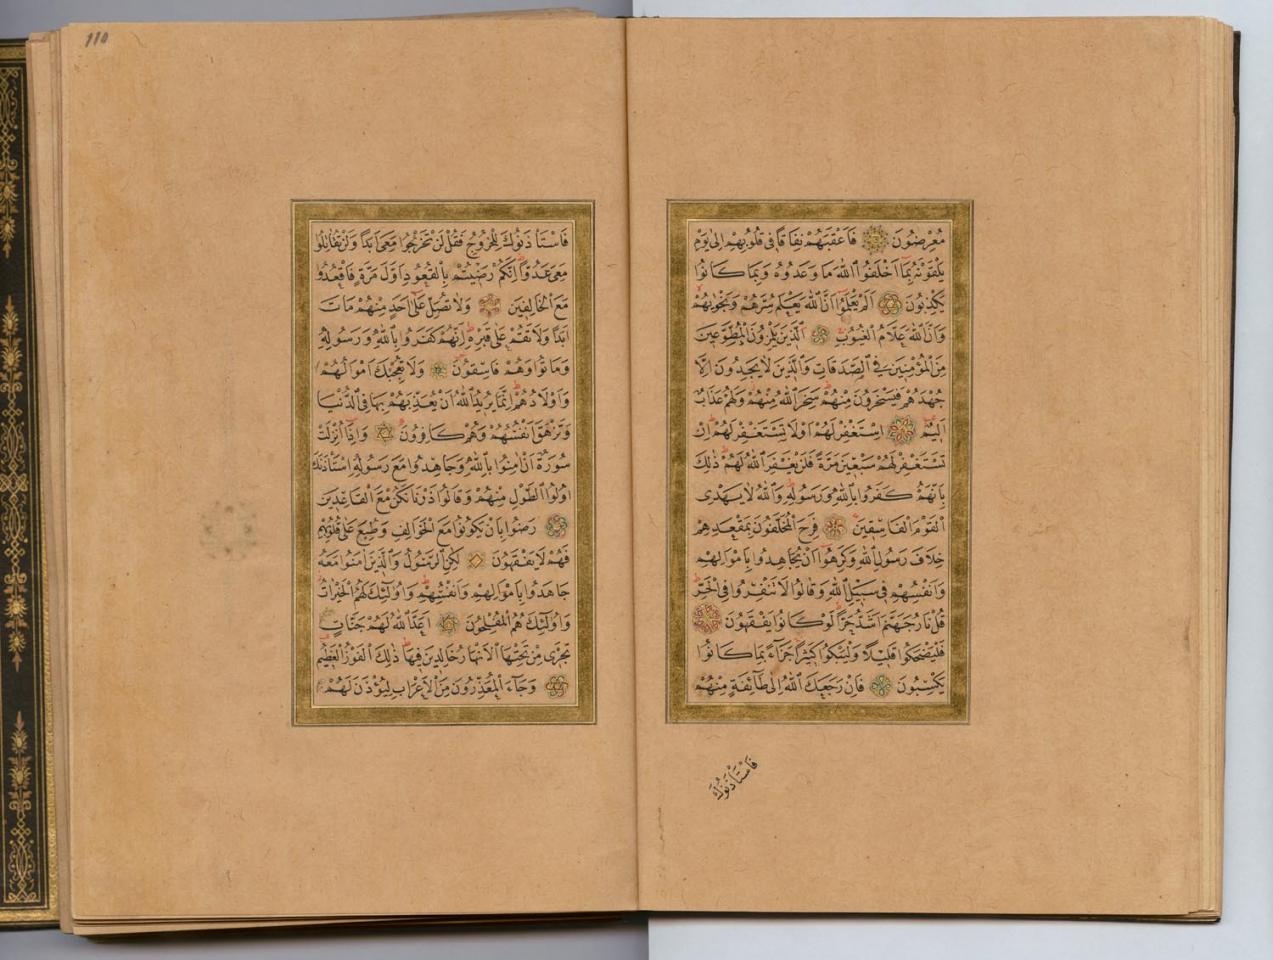 مُعْرِضُونَ فَاَعْقَبَهُمْ نِفَاقًا فِى قُلُوبِهِمْ اِلٰى يَوْمِ
يَلْقَوْنَهُ بِمَا اَخْلَفُوا اللّٰهَ مَا وَعَدُوهُ وَبِمَا كَانُوا
يَكْذِبُونَ اَلَمْ يَعْلَمُوا اَنَّ اللّٰهَ يَعْلَمُ سِرَّهُمْ وَنَجْوٰيهُمْ
وَاَنَّ اللّٰهَ عَلَّامُ الْغُيُوبِ اَلَّذِينَ يَلْمِزُونَ الْمُطَّوِّعِينَ
مِنَ الْمُؤْمِنِينَ فِى الصَّدَقَاتِ وَالَّذِينَ لَا يَجِدُونَ اِلَّا
جُهْدَهُمْ فَيَسْخَرُونَ مِنْهُمْ سَخِرَ اللّٰهُ مِنْهُمْ وَلَهُمْ عَذَابٌ
اَلِيمٌ اِسْتَغْفِرْ لَهُمْ اَوْ لَا تَسْتَغْفِرْ لَهُمْ اِنْ
تَسْتَغْفِرْ لَهُمْ سَبْعِينَ مَرَّةً فَلَنْ يَغْفِرَ اللّٰهُ لَهُمْ ذٰلِكَ
بِاَنَّهُمْ كَفَرُوا بِاللّٰهِ وَرَسُولِهِ وَاللّٰهُ لَا يَهْدِى
الْقَوْمَ الْفَاسِقِينَ فَرِحَ الْمُخَلَّفُونَ بِمَقْعَدِهِمْ
خِلَافَ رَسُولِ اللّٰهِ وَكَرِهُوا اَنْ يُجَاهِدُوا بِاَمْوَالِهِمْ
وَاَنْفُسِهِمْ فِى سَبِيلِ اللّٰهِ وَقَالُوا لَا تَنْفِرُوا فِى الْحَرِّ
قُلْ نَارُ جَهَنَّمَ اَشَدُّ حَرًّا لَوْ كَانُوا يَفْقَهُونَ
فَلْيَضْحَكُوا قَلِيلًا وَلْيَبْكُوا كَثِيرًا جَزَاءً بِمَا كَانُوا
يَكْسِبُونَ فَاِنْ رَجَعَكَ اللّٰهُ اِلٰى طَائِفَةٍ مِنْهُمْ
فَاسْتَاْذَنُوكَ
110
فَاسْتَاْذَنُوكَ لِلْخُرُوجِ فَقُلْ لَنْ تَخْرُجُوا مَعِىَ اَبَدًا وَلَنْ تُقَاتِلُوا
مَعِىَ عَدُوًّا اِنَّكُمْ رَضِيتُمْ بِالْقُعُودِ اَوَّلَ مَرَّةٍ فَاقْعُدُوا
مَعَ الْخَالِفِينَ وَلَا تُصَلِّ عَلٰى اَحَدٍ مِنْهُمْ مَاتَ
اَبَدًا وَلَا تَقُمْ عَلٰى قَبْرِهِ اِنَّهُمْ كَفَرُوا بِاللّٰهِ وَرَسُولِهِ
وَمَاتُوا وَهُمْ فَاسِقُونَ وَلَا تُعْجِبْكَ اَمْوَالُهُمْ
وَاَوْلَادُهُمْ اِنَّمَا يُرِيدُ اللّٰهُ اَنْ يُعَذِّبَهُمْ بِهَا فِى الدُّنْيَا
وَتَزْهَقَ اَنْفُسُهُمْ وَهُمْ كَافِرُونَ وَاِذَا اُنْزِلَتْ
سُورَةٌ اَنْ اٰمِنُوا بِاللّٰهِ وَجَاهِدُوا مَعَ رَسُولِهِ اسْتَاْذَنَكَ
اُولُوا الطَّوْلِ مِنْهُمْ وَقَالُوا ذَرْنَا نَكُنْ مَعَ الْقَاعِدِينَ
رَضُوا بِاَنْ يَكُونُوا مَعَ الْخَوَالِفِ وَطُبِعَ عَلٰى قُلُوبِهِمْ
فَهُمْ لَا يَفْقَهُونَ لٰكِنِ الرَّسُولُ وَالَّذِينَ اٰمَنُوا مَعَهُ
جَاهَدُوا بِاَمْوَالِهِمْ وَاَنْفُسِهِمْ وَاُولٰئِكَ لَهُمُ الْخَيْرَاتُ
وَاُولٰئِكَ هُمُ الْمُفْلِحُونَ اَعَدَّ اللّٰهُ لَهُمْ جَنَّاتٍ
تَجْرِى مِنْ تَحْتِهَا الْاَنْهَارُ خَالِدِينَ فِيهَا ذٰلِكَ الْفَوْزُ الْعَظِيمُ
وَجَاءَ الْمُعَذِّرُونَ مِنَ الْاَعْرَابِ لِيُؤْذَنَ لَهُمْ